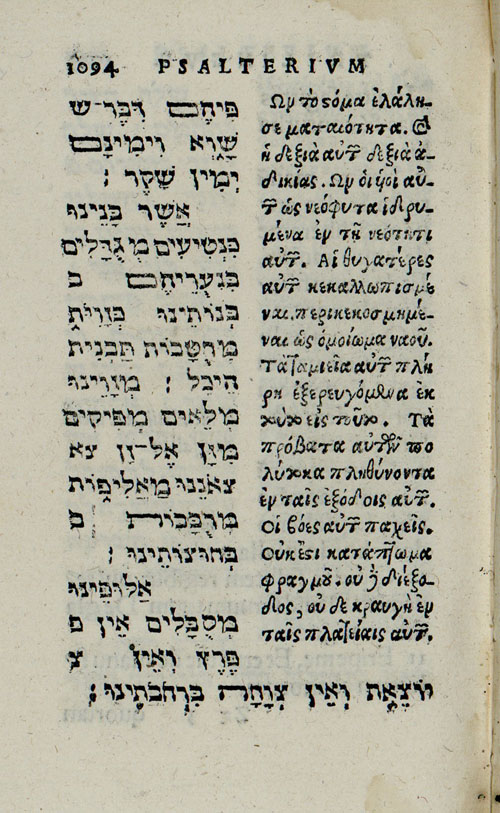 1094 PSALTERIVM
פִּיהֶם דִּבֶּר־שׁ
שָׁוְא וִימִינָם
יְמִין שָׁקֶר :
אֲשֶׁר בָּנֵינוּ
כִּנְטִיעִים מְגֻדָּלִים
בִּנְעֻרֵיהֶם כ
בְּנוֹתֵינוּ כְזָוִיֹּת
מְחֻטָּבוֹת תַּבְנִית
הֵיכָל : מְזָוֵינוּ
מְלֵאִים מְפִיקִים
מִזַּן אֶל־זַן צא
צֹאנֵנוּ מַאֲלִיפוֹת
מְרֻבָּבוֹת ב
בְּחוּצוֹתֵינוּ :
אַלּוּפֵינוּ
מְסֻבָּלִים אֵין פ
פֶּרֶץ וְאֵין י
יוֹצֵאת וְאֵין צְוָחָה בִּרְחֹבֹתֵינוּ :
Ὧν τὸ στόμα ἐλάλη-
σε ματαιότητα. Καὶ
ἡ δεξιὰ αὐτῶν δεξιὰ ἀ-
δικίας. Ὧν οἱ υἱοὶ αὐ-
τῶν ὡς νεόφυτα ἱδρυ-
μένα ἐν τῇ νεότητι
αὐτῶν. Αἱ θυγατέρες
αὐτῶν κεκαλλωπισμέ
ναι, περικεκοσμημέ-
ναι ὡς ὁμοίωμα ναοῦ.
Τὰ ταμιεῖα αὐτῶν πλή
ρη ἐξερευγόμενα ἐκ
τούτου εἰς τοῦτο. Τὰ
πρόβατα αὐτῶν πο
λύτοκα πληθύνοντα
ἐν ταῖς ἐξόδοις αὐτῶν.
Οἱ βόες αὐτῶν παχεῖς.
Οὐκ ἔστι κατάπτωμα
φραγμοῦ. οὐδὲ διέξο-
δος, οὐδὲ κραυγὴ ἐν
ταῖς πλατείαις αὐτῶν.